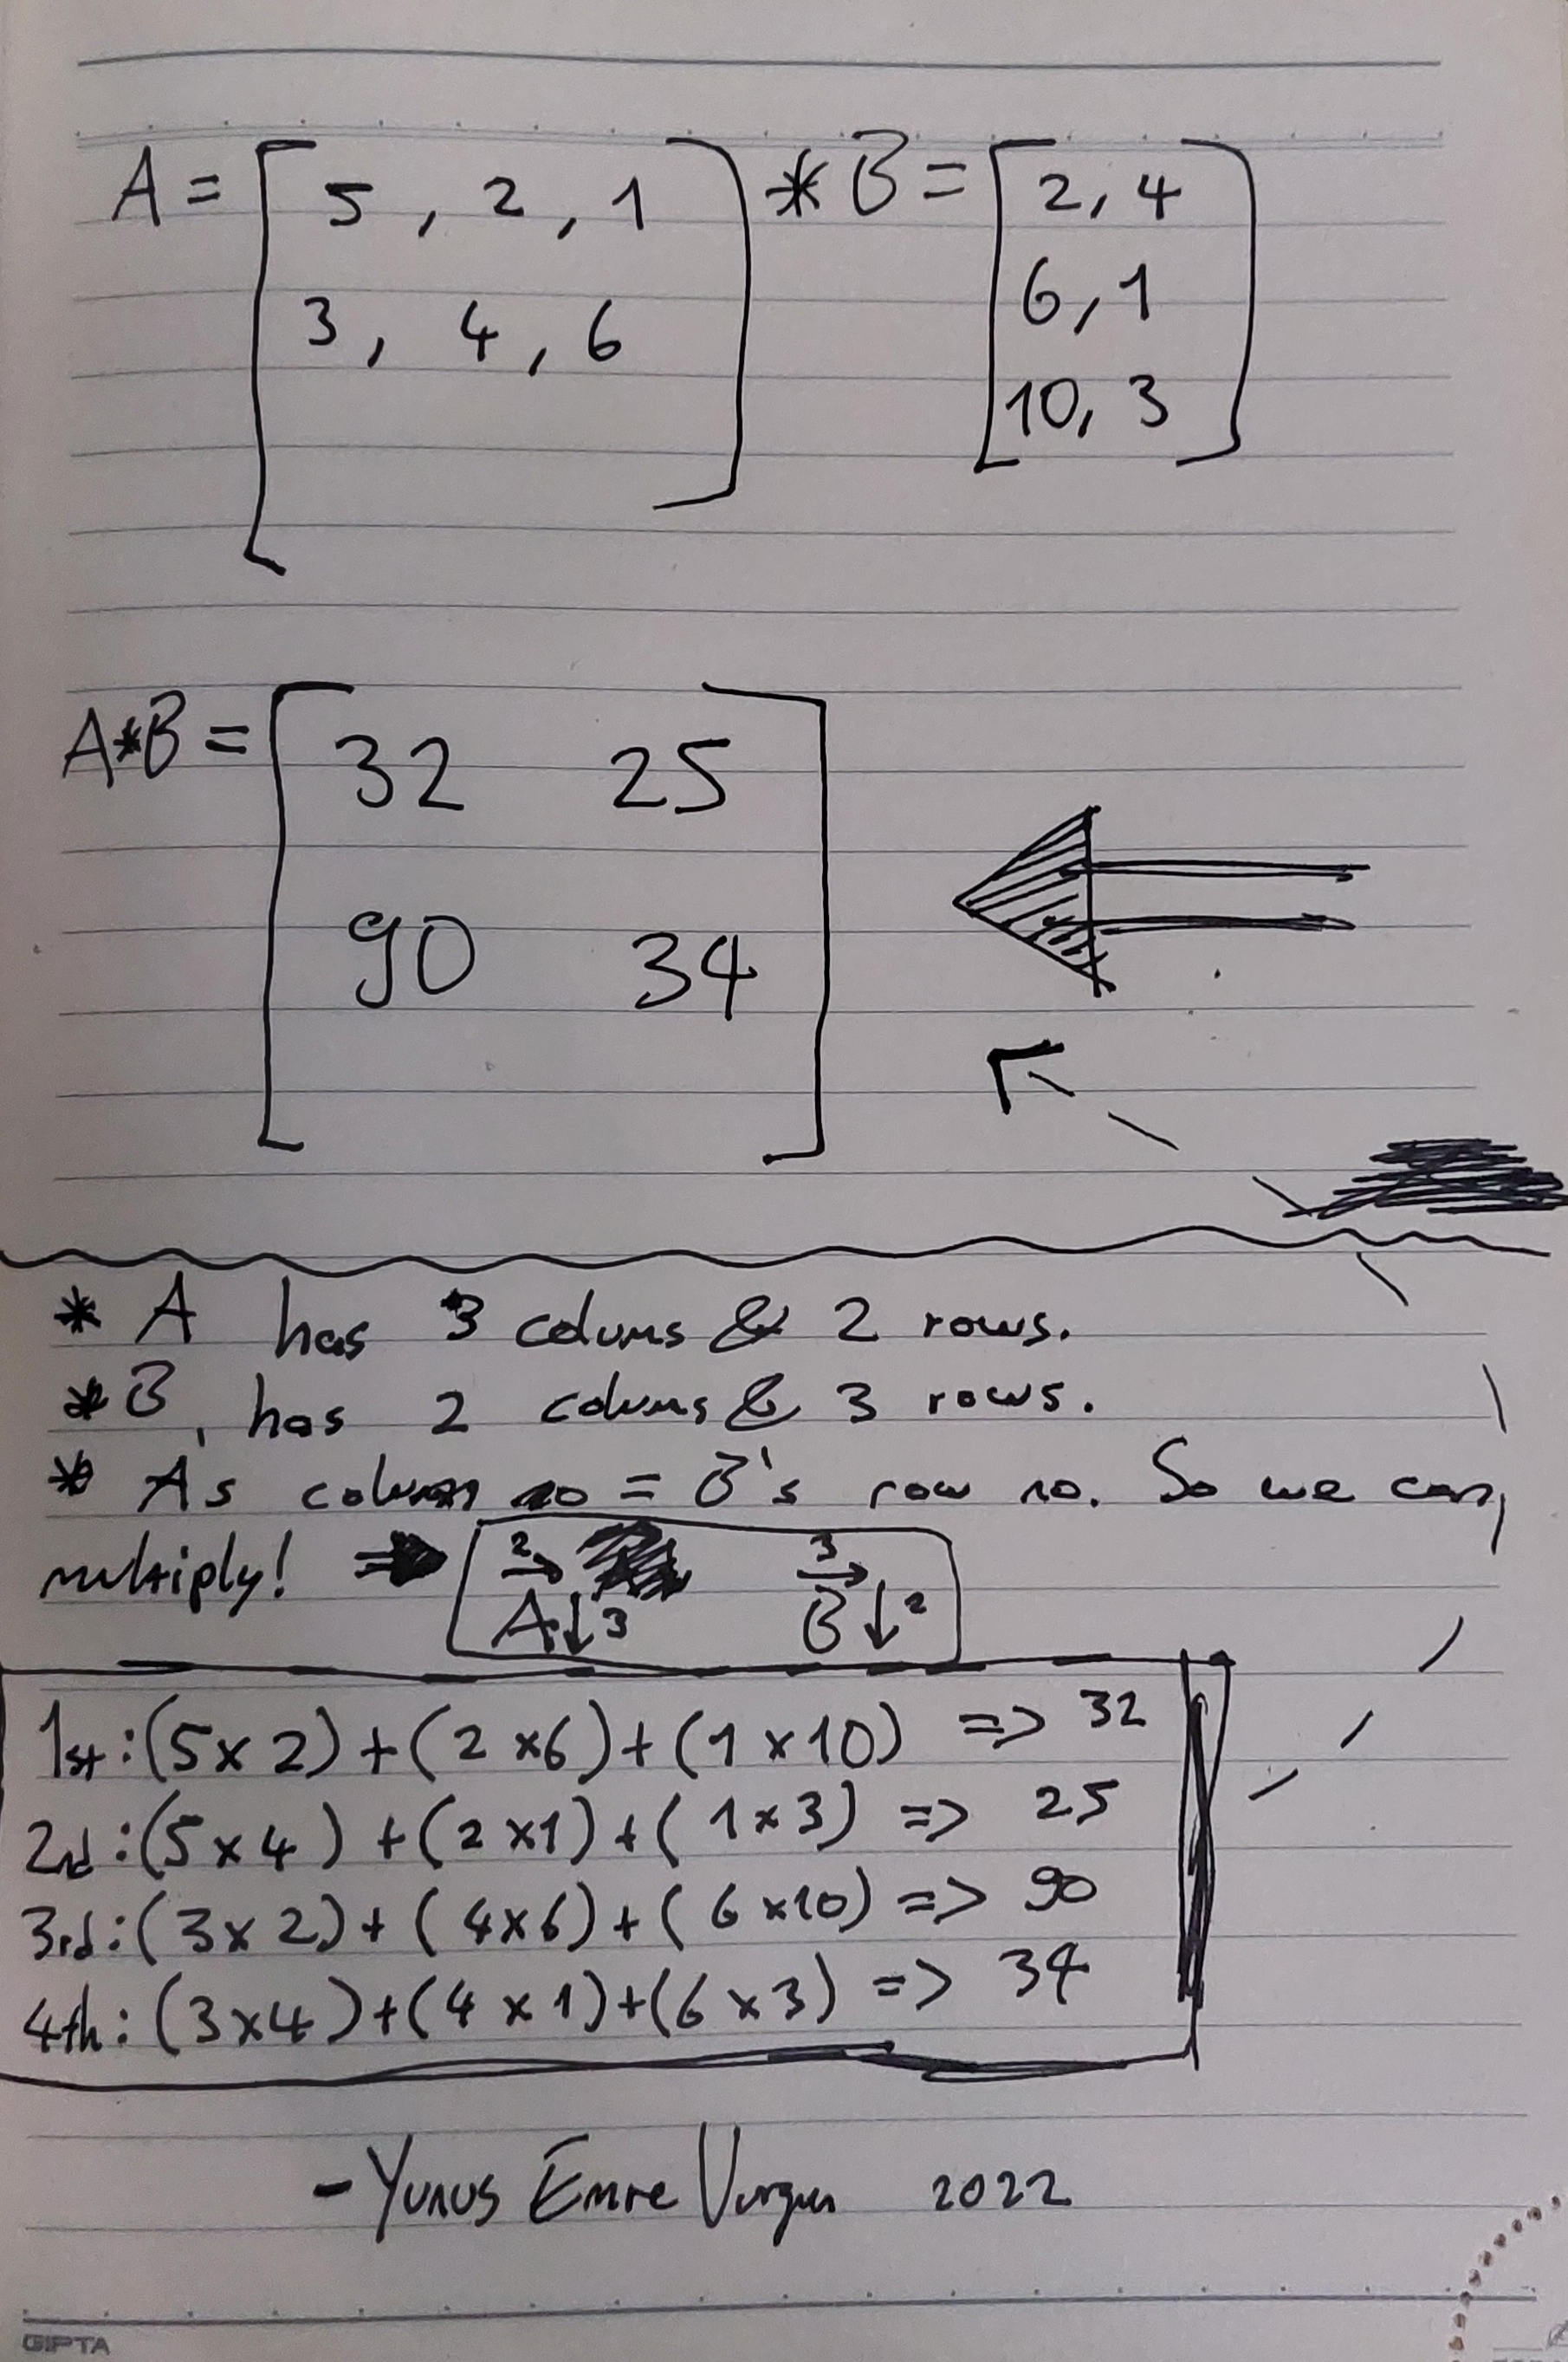 A = [ 5 , 2 , 1 ] * B = [ 2, 4
3 , 4 , 6 6, 1
10, 3 ]
A*B = [ 32 25
90 34 ]
* A has 3 colums & 2 rows.
* B, has 2 colums & 3 rows.
* A's column no = B's row no. So we can,
multiply! ⇒ 2→ 3→
A↓3 B↓2
1st: (5 x 2) + (2 x 6) + (1 x 10) => 32
2nd: (5 x 4) + (2 x 1) + (1 x 3) => 25
3rd: (3 x 2) + (4 x 6) + (6 x 10) => 90
4th: (3 x 4) + (4 x 1) + (6 x 3) => 34
- Yunus Emre Vurgun 2022
GIPTA